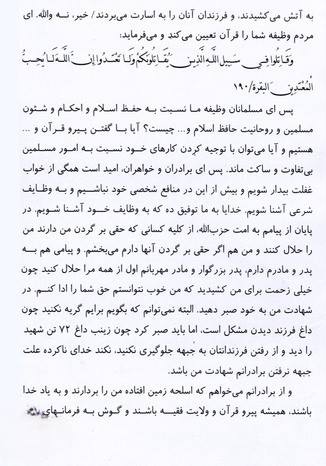 به آتش می‌کشیدند، و فرزندان آنان را به اسارت می‌بردند/ خیر، نــه والله. ای
مردم وظیفه شما را قرآن تعیین می‌کند و می‌فرماید:
وَقَاتِلُوا فِي سَبِيلِ اللَّهِ الَّذِينَ يُقَاتِلُونَكُمْ وَلَا تَعْتَدُوا إِنَّ اللَّهَ لَا يُحِبُّ
الْمُعْتَدِينَ البقرة/۱۹۰
پس ای مسلمانان وظیفه ما نسبت به حفظ اسلام و احکام و شئون
مسلمین و روحانیت حافظ اسلام و... چیست؟ آیا با گفتـن پیـرو قرآن و ...
هستیم و آیا می‌توان با توجیه کردن کارهای خود نسبت به امور مسلمین
بی‌تفاوت و ساکت ماند. پس ای برادران و خواهران، امید است همگی از خواب
غفلت بیدار شویم و بیش از این در منافع شخصی خود نباشیـم و به وظایـف
شرعی آشنا شویم. خدایا به ما توفیق ده که به وظایف خــود آشنـا شـویم. در
پایان از پیامم به امت حزب‌الله، از کلیه کسانی که حقی بر گردن من دارند من
را حلال کنند و من هم اگر حقی بر گردن آنها دارم می‌بخشم. و پیامی هم بــه
پدر و مادرم دارم. پدر بزرگوار و مادر مهربانم اول از همه مرا حلال کنید چون
خیلی زحمت برای من کشیدید که من خوب نتوانستم حق شما را ادا کنــم. در
شهادت من به خود صبر دهید. البته نمی‌توانم که بگویم برایم گریه نکنید چون
داغ فرزند دیدن مشکل است، اما باید صبر کرد چون زینب داغ ۷۲ تن شهید
را دید و از رفتن فرزندانتان به جبهه جلوگیری نکنید، نکند خدای ناکرده علت
جبهه نرفتن برادرانم شهادت من باشد.
و از برادرانم می‌خواهم که اسلحه زمین افتاده من را بردارند و به یاد خدا
باشند، همیشه پیرو قرآن و ولایت فقیـــه باشنـد و گـوش بـه فرمـانـهای